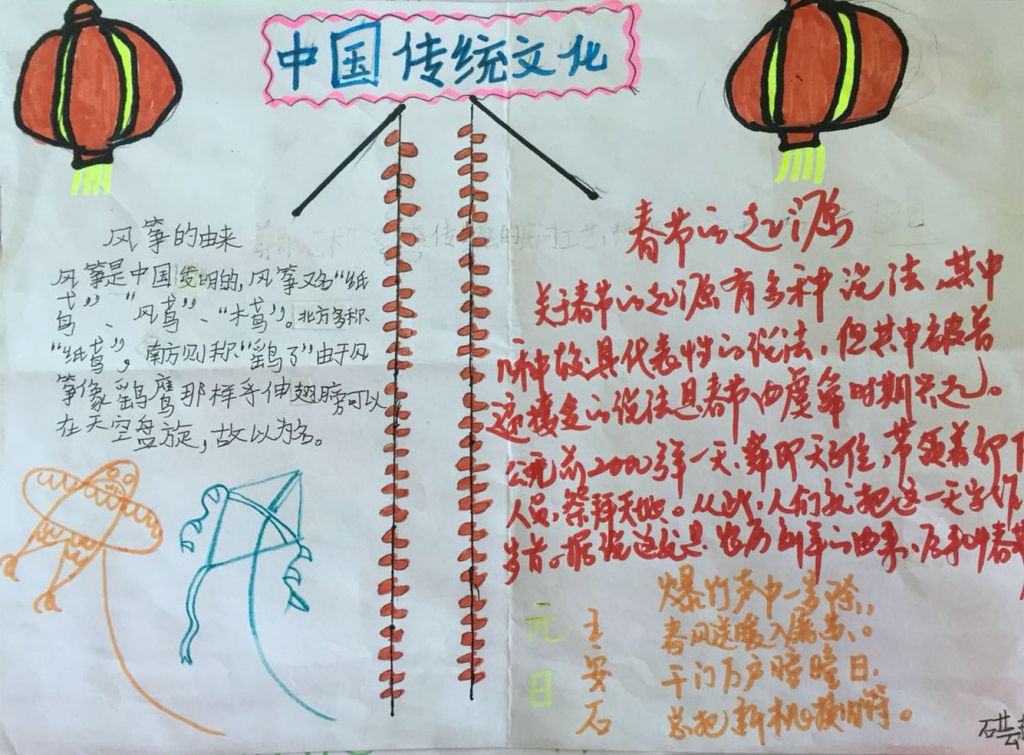 中国传统文化
风筝的由来
风筝是中国发明的,风筝又名"纸
鸢"、"风鸢"、"木鸢"。北方多称
"纸鸢",南方则称"鹞子"由于风
筝像鹞鹰那样乎伸翅膀可以
在天空盘旋,故以为名。
春节的起源
关于春节的起源有多种说法,其中
几种较具代表性的说法,但其中被普
遍接受的说法是春节由虞舜时期兴起。
公元前2000多年一天,舜即天子位,带领着部下
人员,祭拜天地。从此,人们就把这一天字作
岁首。据说这就是农历新年的由来,后来叫春节
元日
王安石
爆竹声中一岁除,
春风送暖入屠苏。
千门万户曈曈日,
总把新桃换旧符。